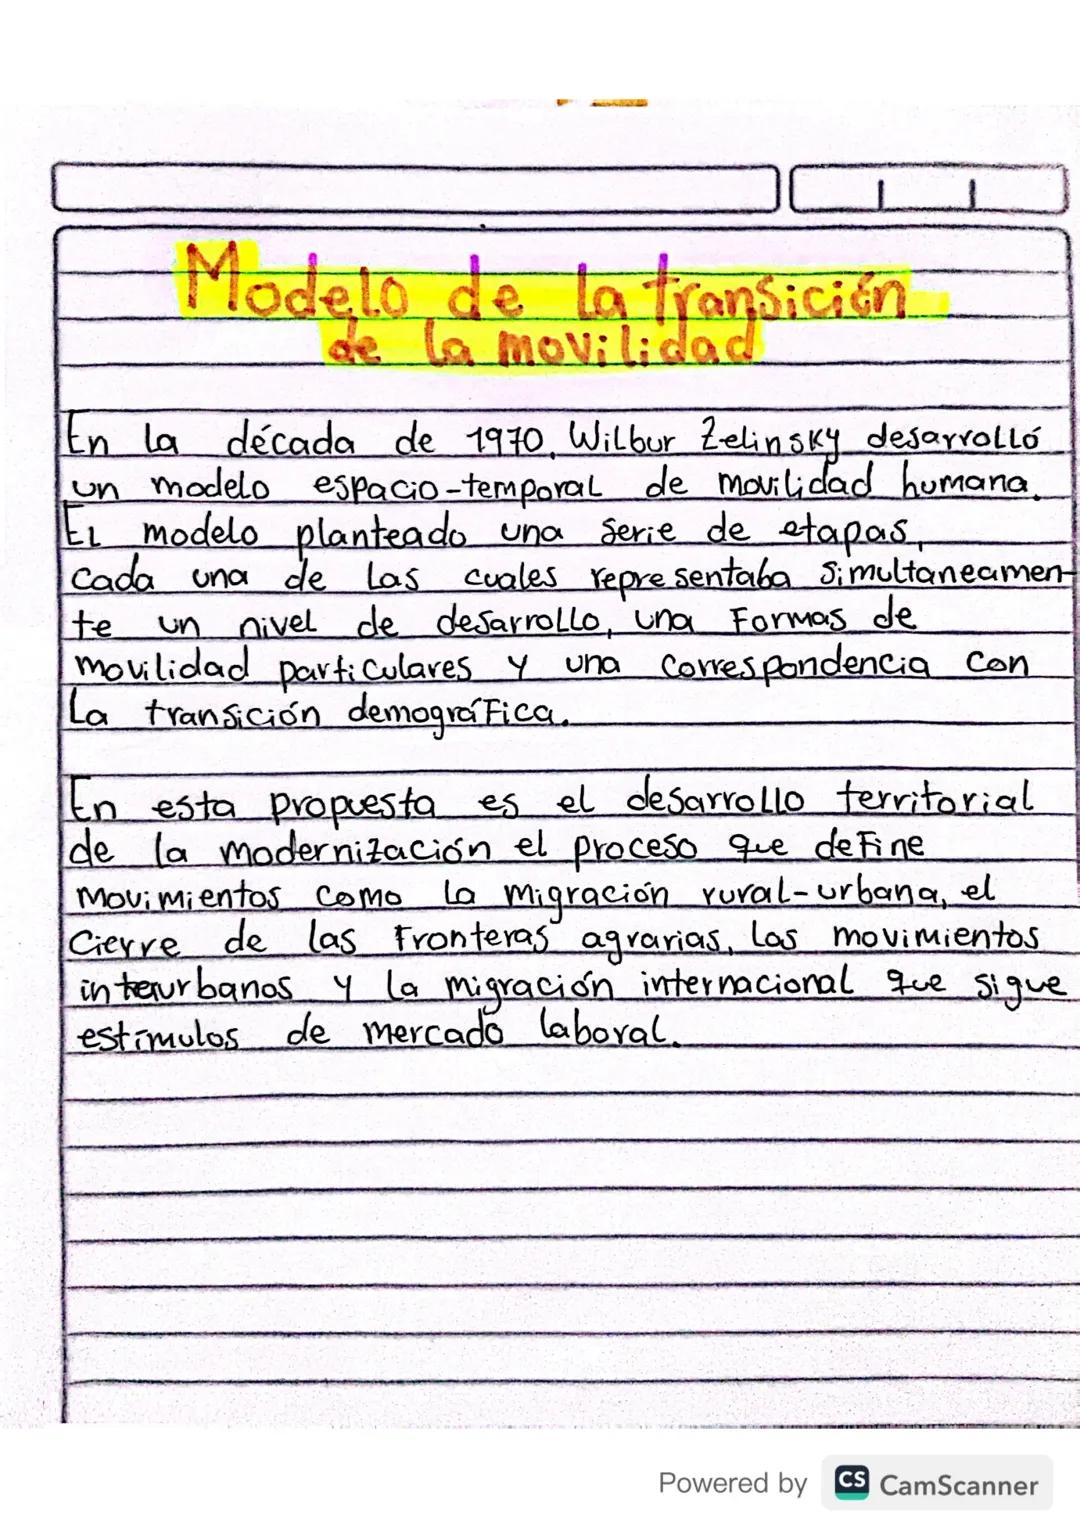 Modelo de la transición
de la movilidad
En la década de 1970, Wilbur Zelinsky desarrolló
un modelo espacio-temporal de movilidad humana.
El modelo planteado una serie de etapas,
cada una de las cuales representaba simultaneamen-
te un nivel de desarrollo, una Formas de
movilidad particulares y una correspondencia con
La transición demográfica.
En esta propuesta es el desarrollo territorial
de la modernización el proceso que define
movimientos como la migración rural-urbana, el
Cierre de las Fronteras agrarias, las movimientos
interurbanos y la migración internacional que sigue
estímulos de mercado laboral.
Powered by CS CamScanner